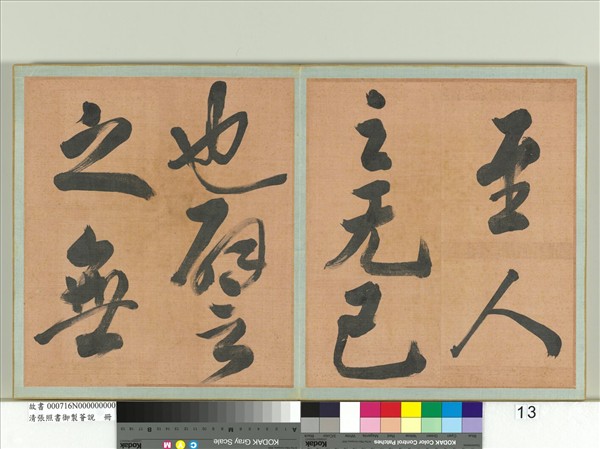 至人
之无己
也
之無
故書 000716N000000000
清張照書御製 說 冊
KODAK Gray Scale
KODAK Color Control Patches
Kodak
C Y M
13